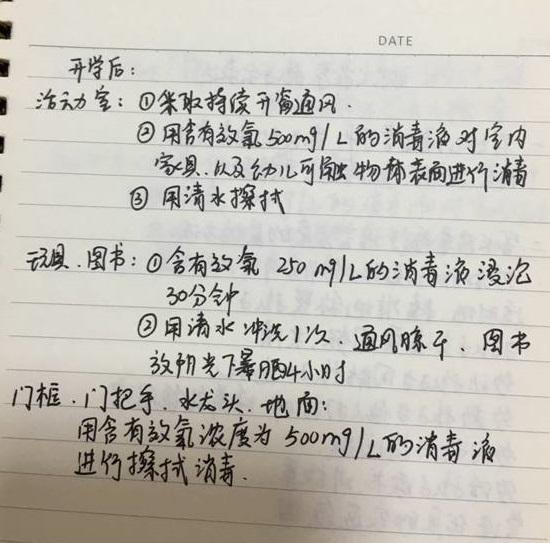 DATE
开学后:
活动室:①采取持续开窗通风.
②用含有效氯500mg/L的消毒液对室内
家具.以及幼儿可触物体表面进行消毒
③用清水擦拭
玩具.图书:①含有效氯 250mg/L的消毒液浸泡
30分钟
②用清水冲洗1次.通风晾干.图书
放阳光下暴晒4小时
门框.门把手.水龙头.地面:
用含有效氯浓度为500mg/L的消毒液
进行擦拭消毒.